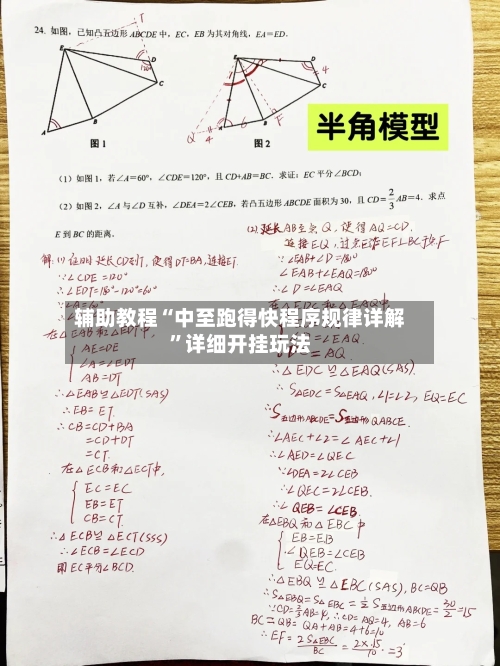 24. 如图，已知凸五边形 ABCDE 中，EC，EB 为其对角线，EA=ED.
T
E
D
120°
C
A
B
图 1
E
D
4
C
Q
4
A
6
B
F
图 2
半角模型
（1）如图 1，若∠A=60°，∠CDE=120°，且 CD+AB=BC．求证：EC 平分∠BCD；
（2）如图 2，∠A 与∠D 互补，∠DEA=2∠CEB，若凸五边形 ABCDE 面积为 30，且 CD=2/3 AB=4．求点
E 到 BC 的距离．
解:(1)在时延长CD到T，使得DT=BA,连接ET.
∵∠CDE=120°
∴∠EDT=180°-120°=60°
∵∠A=60°
在△EAB和△EDT中
{ AE=DE
∠A=∠EDT
AB=DT
∴△EAB≌△EDT(SAS)
∴EB=ET.
∴CB=CD+BA
=CD+DT
=CT.
在△ECB和△ECT中,
{ EC=EC
EB=ET
CB=CT.
∴△ECB≌△ECT(SSS)
∴∠ECB=∠ECD
即EC平分∠BCD.
(2)延长AB至点Q，使得AQ=CD.
连接EQ,过点E作EF⊥BC于点F
∵∠EAB+∠D=180°
∠EAB+∠EAQ=180°
∴∠D=∠EAQ
=AQ.
∴△EDC≌△EAQ(SAS).
∴S△EDC=S△EAQ,∠1=∠2, EQ=EC
∴S五边形ABCDE=S四边形QABCE.
∴∠AEC+∠2=∠AEC+∠1
∴∠AED=∠QEC
∵∠DEA=2∠CEB
∴∠QEC=2∠CEB.
∴∠QEB=∠CEB.
在△EBQ和△EBC中
{ EB=EB
∠QEB=∠CEB
EQ=EC.
∴△EBQ≌△EBC(SAS), BC=QB
∴S△EBQ=S△EBC=1/2 S五边形ABCDE=30/2=15
∵CD=2/3AB=4, ∴CD=AQ=4, AB=6
BC=QB=QA+AB=4+6=10
∴EF=2S△EBC/BC=2×15/10=3
辅助教程“中至跑得快程序规律详解
”详细开挂玩法